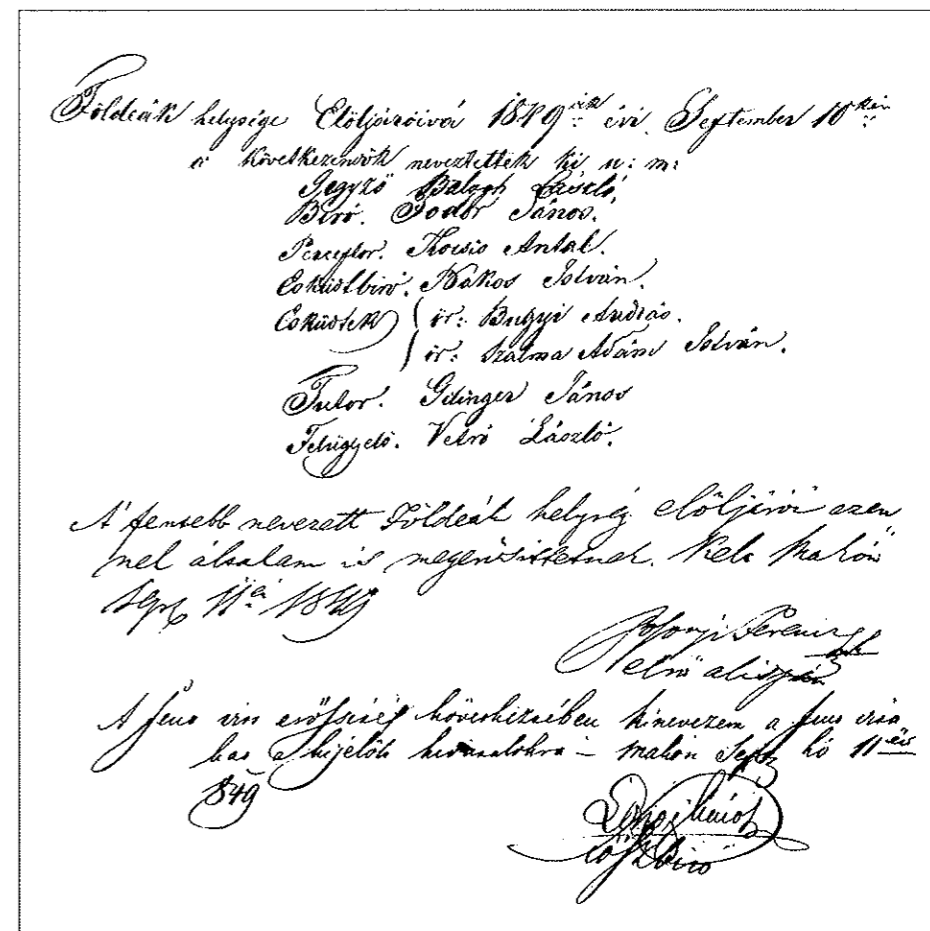 Földeák helysége Elöljáróivá 1849ik évi September 10kén
a következendők neveztettek ki u: m:
Jegyző Balogh László,
Biró. Fodor János.
Perceptor. Kocsis Antal.
Esküdtbiró. Kakos István.
Esküdtek ör: Bugyi András.
ör: Szalma Ádám István.
Tutor. Gilinger János
Felügyelő. Vetró László.
A' fentebb nevezett Földeák helység elöljárói ezen
nel általam is megerősittetnek. Kelt Makón
Sept 11én 1849
Ferencz
első alispán
A fent irt erősités következtében kinevezem a fent irta
kat a kijelölt hivatalokra – Makón Sept hó 11én
849
főszbiró